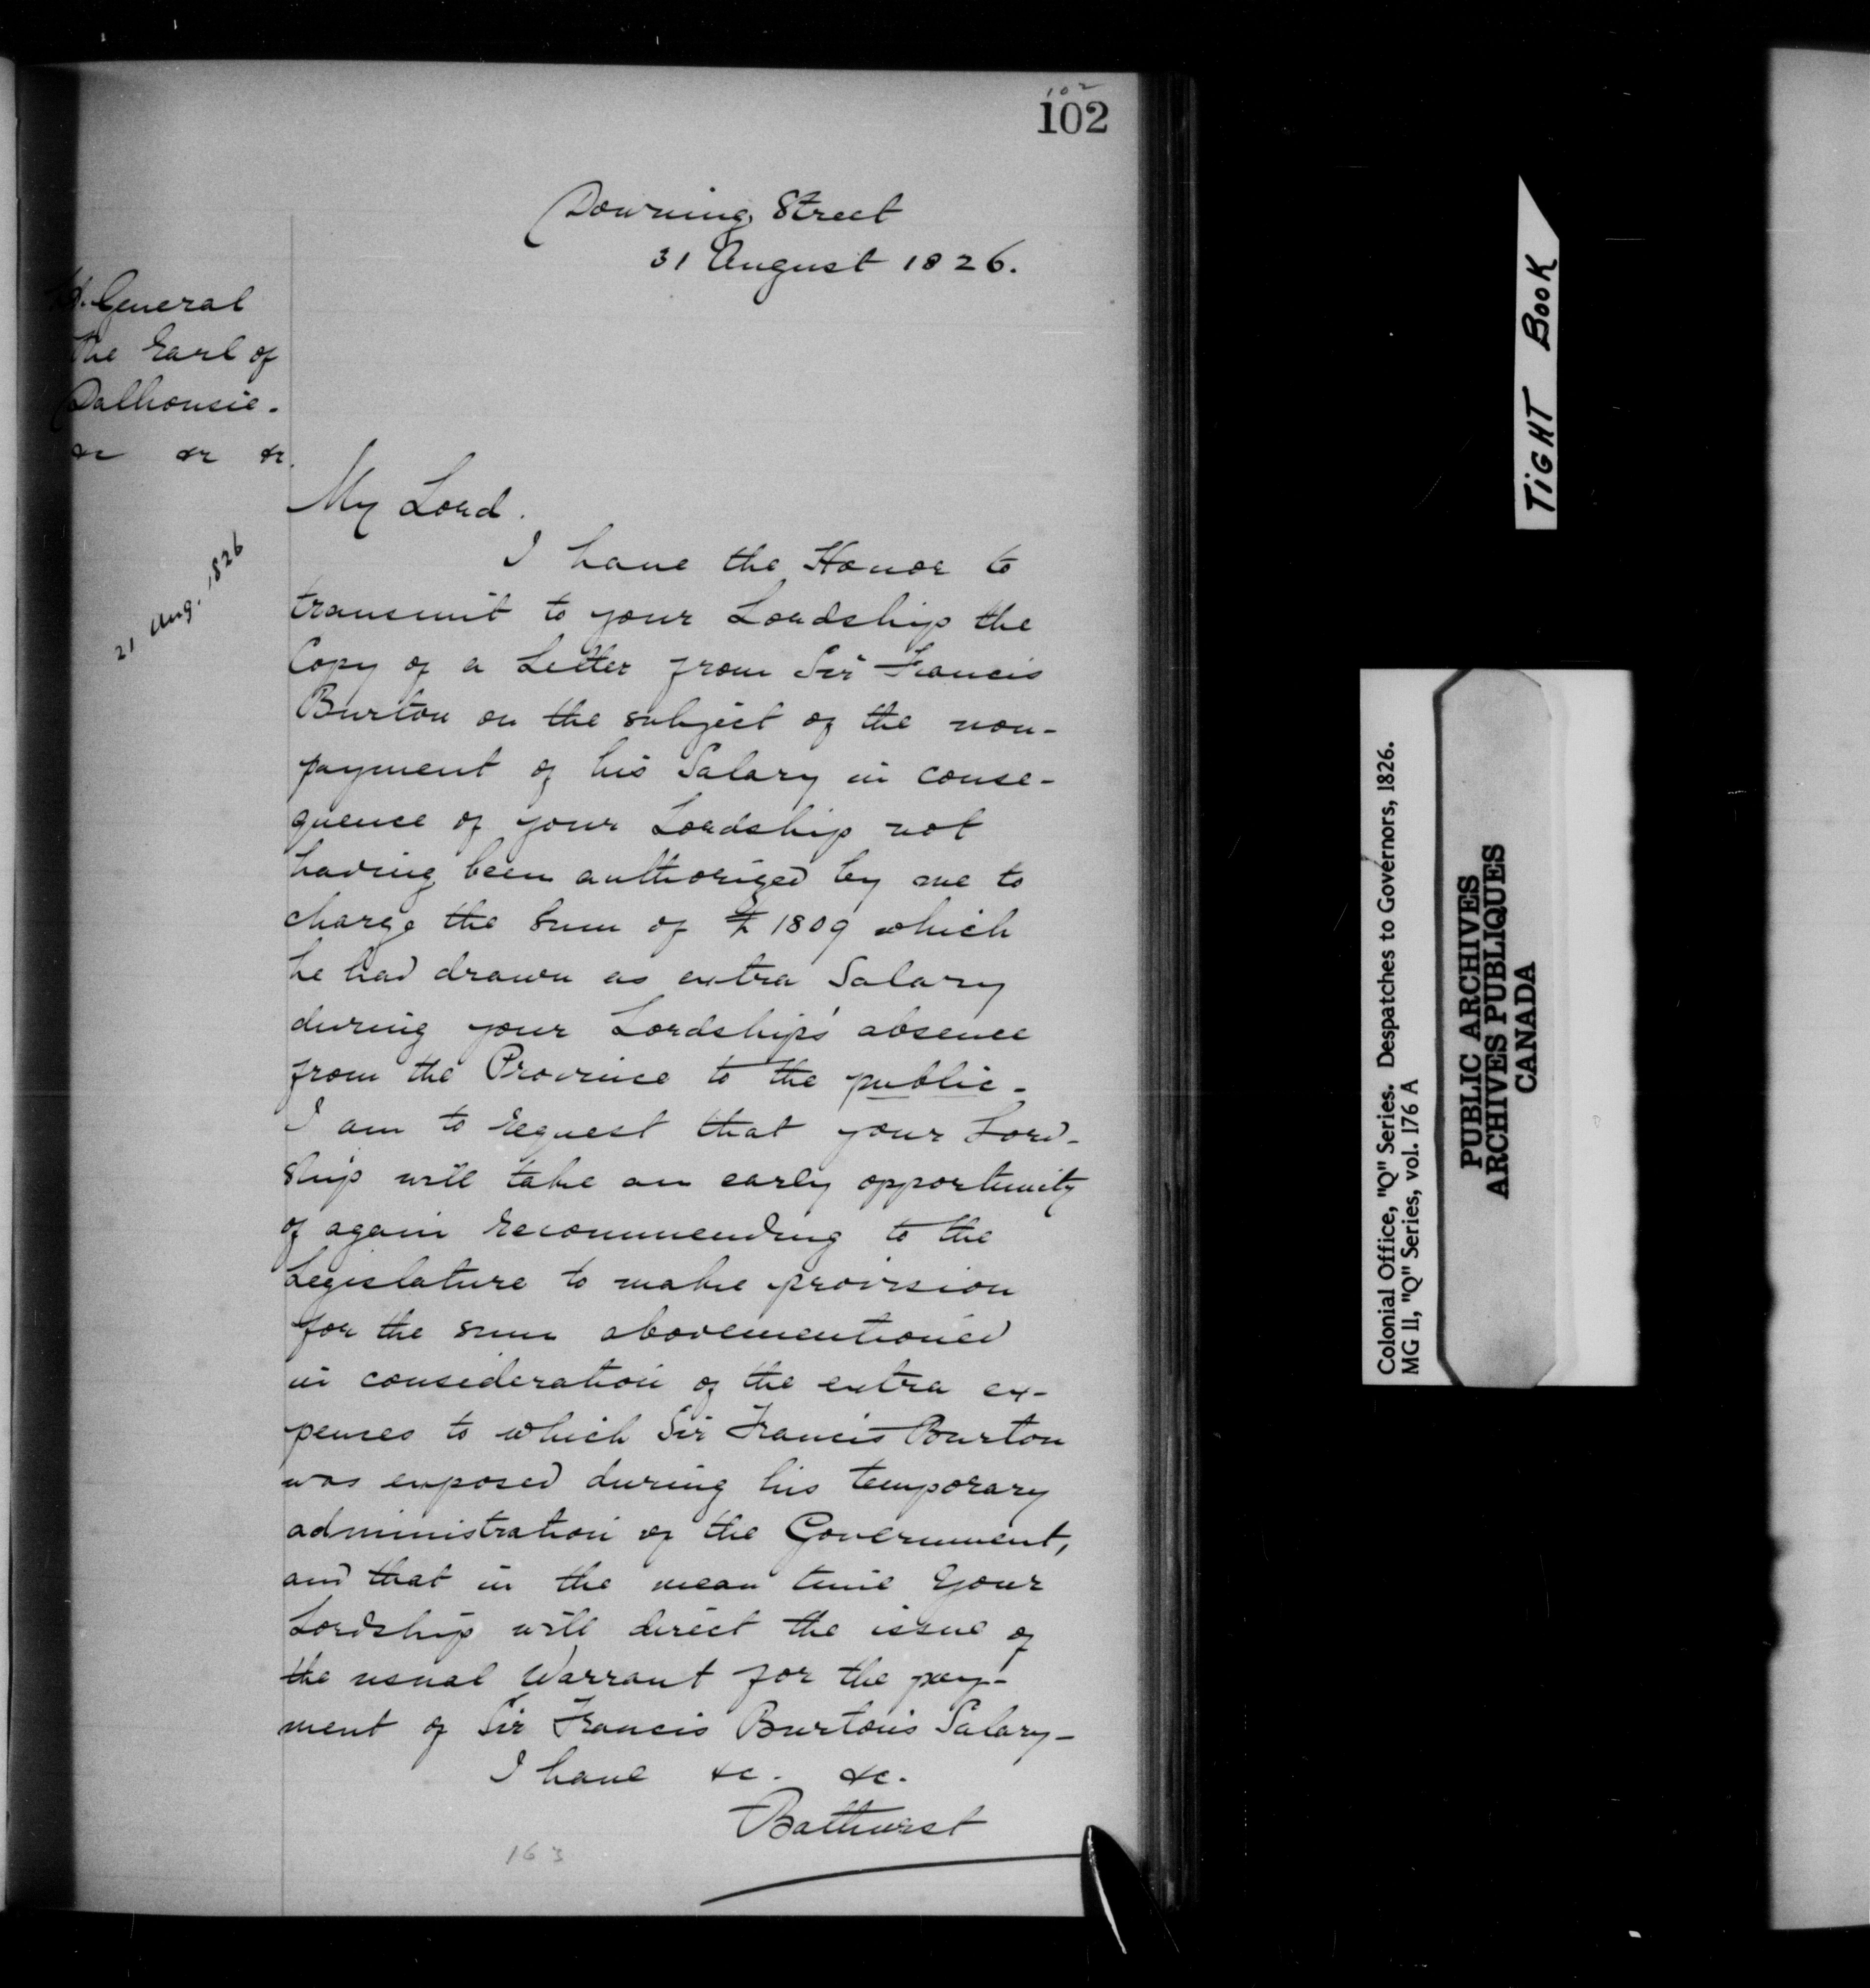 102
102
Downing Street
31 August 1826.
Lt. General
the Earl of
Dalhousie.
&c &c &c.
My Lord.
21 Aug. 1826
I have the Honor to
transmit to your Lordship the
Copy of a Letter from Sir Francis
Burton on the subject of the non-
payment of his Salary in conse-
quence of your Lordship not
having been authorized by me to
charge the Sum of £1809 which
he had drawn as extra Salary
during your Lordship's absence
from the Province to the public -
I am to request that your Lord-
ship will take an early opportunity
of again recommending to the
Legislature to make provision
for the sum abovementioned
in consideration of the extra ex-
penses to which Sir Francis Burton
was exposed during his temporary
administration of the Government,
and that in the mean time Your
Lordship will direct the issue of
the usual Warrant for the pay-
ment of Sir Francis Burton's Salary -
I have &c. &c.
Bathurst
163
TIGHT BOOK
Colonial Office, "Q" Series. Despatches to Governors, 1826.
MG 11, "Q" Series, vol. 176 A
PUBLIC ARCHIVES
ARCHIVES PUBLIQUES
CANADA